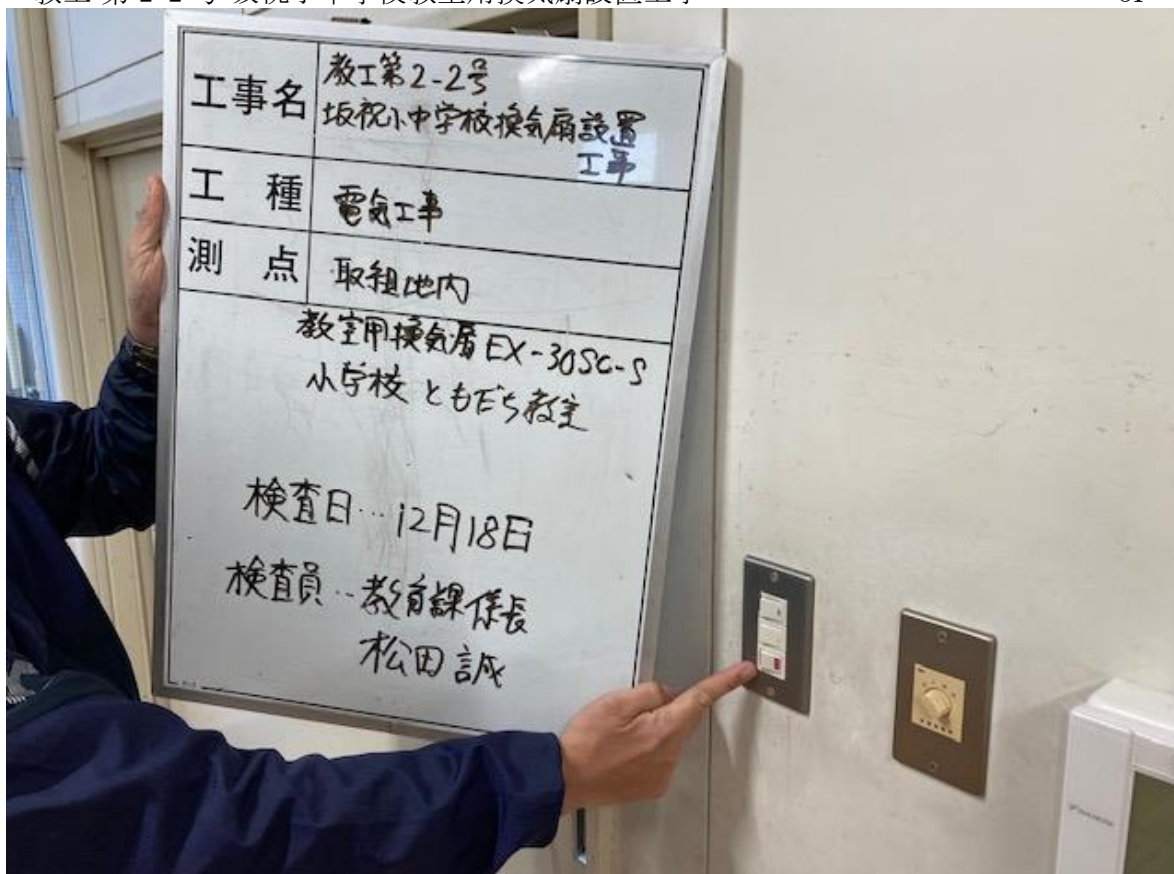 教工第2-2号
工事名
坂祝小中学校換気扇設置
工事
工種
電気工事
測点
取組地内
教室用換気扇 EX-30SC-S
小学校 ともだち教室
検査日…12月18日
検査員‥教育課係長
松田誠